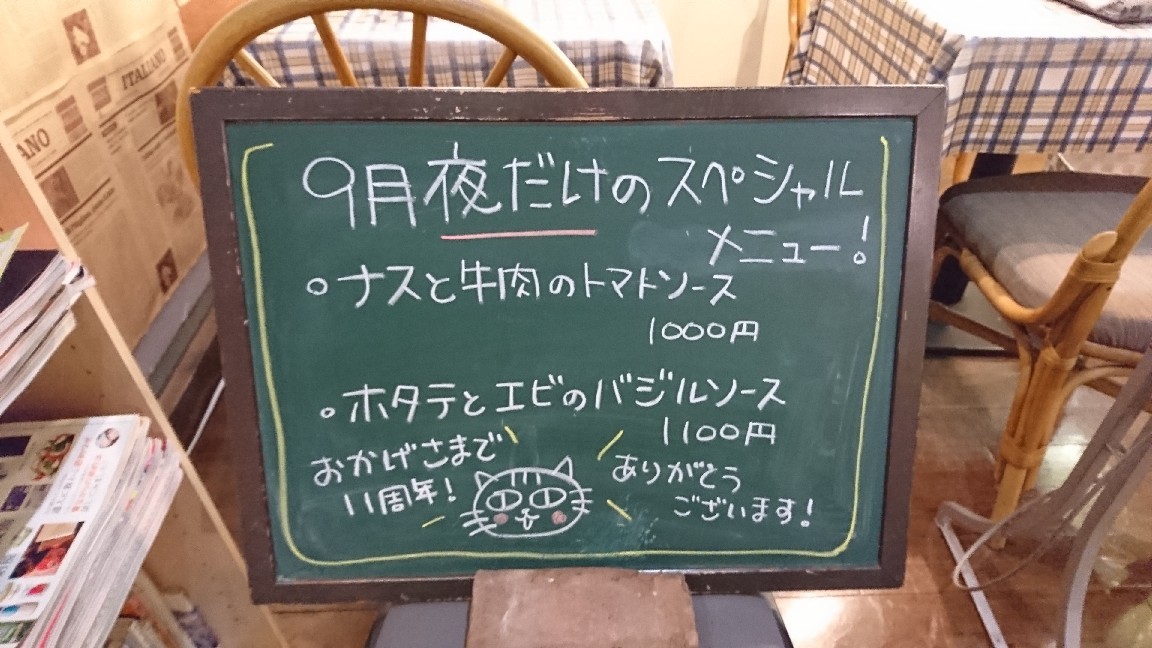 ITALIANO
ANO
9月夜だけのスペシャル
メニュー!
○ナスと牛肉のトマトソース
1000円
○ホタテとエビのバジルソース
1100円
おかげさまで
11周年!
ありがとう
ございます!